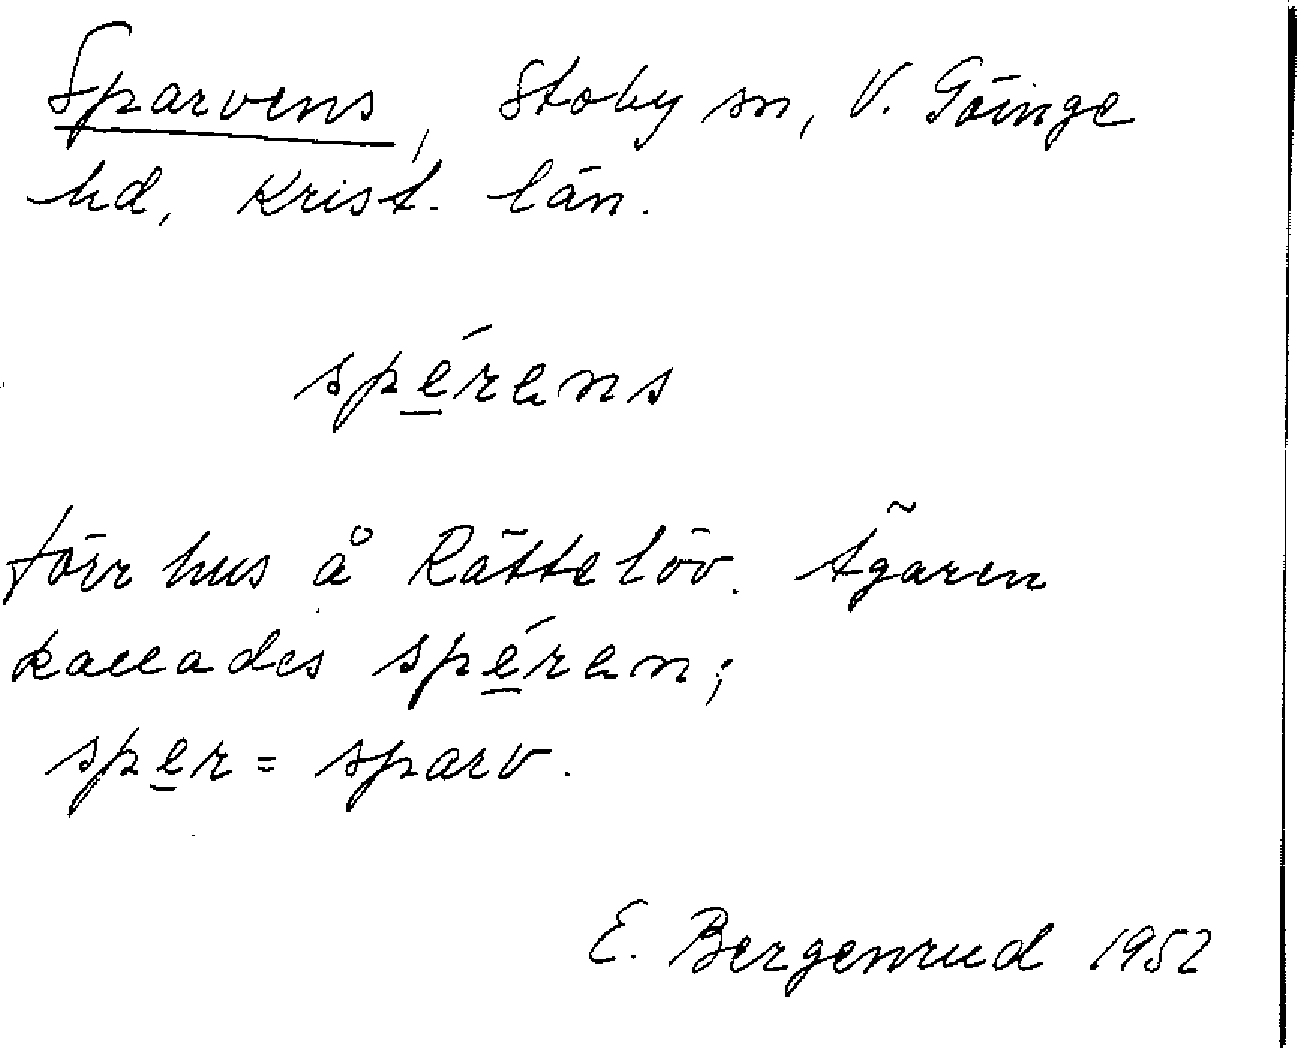 Sparvens, Stoby sn, V. Göinge
hd, Krist. län.
spérens
förr hus å Röttelöv. Ägaren
kallades spéren;
sper = sparv.
E. Bergenrud 1952